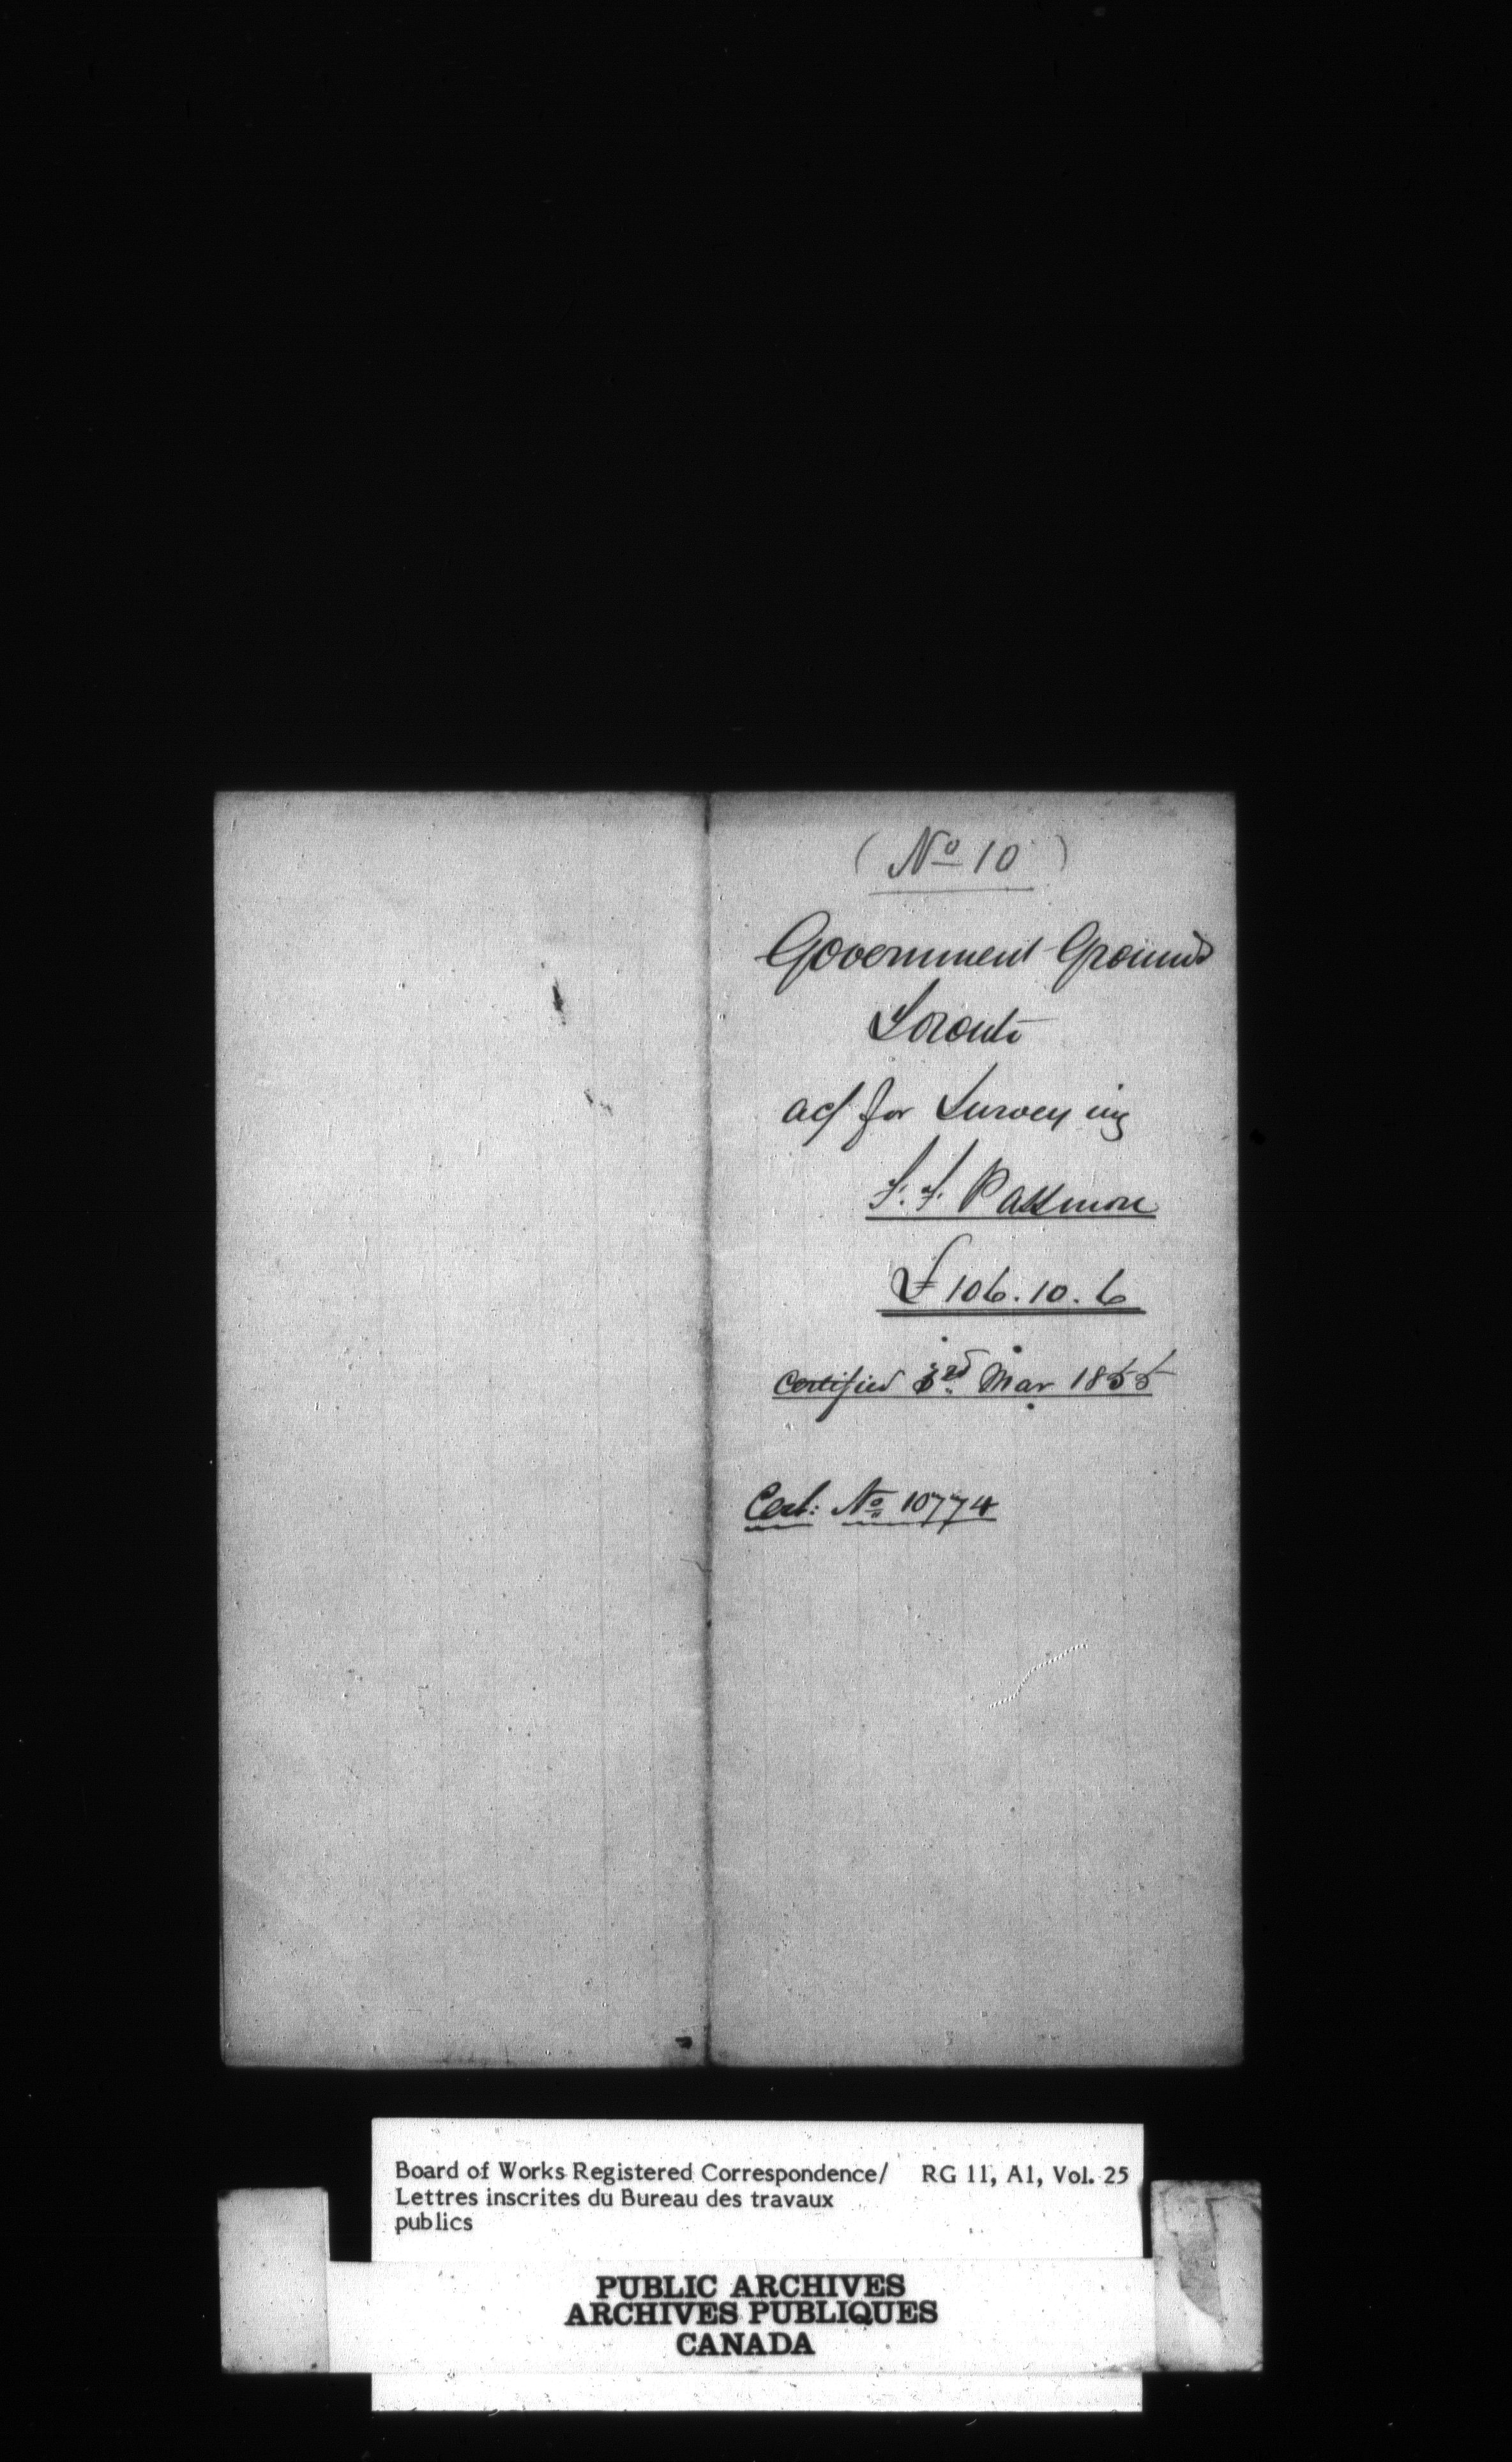 (No 10)
Government Grounds
Toronto
a/c for Surveying
F. F. Passmore
£106.10.6
Certified 3rd Mar 1855
Cert: No 10774
Board of Works Registered Correspondence/ RG 11, A1, Vol. 25
Lettres inscrites du Bureau des travaux
publics
PUBLIC ARCHIVES
ARCHIVES PUBLIQUES
CANADA